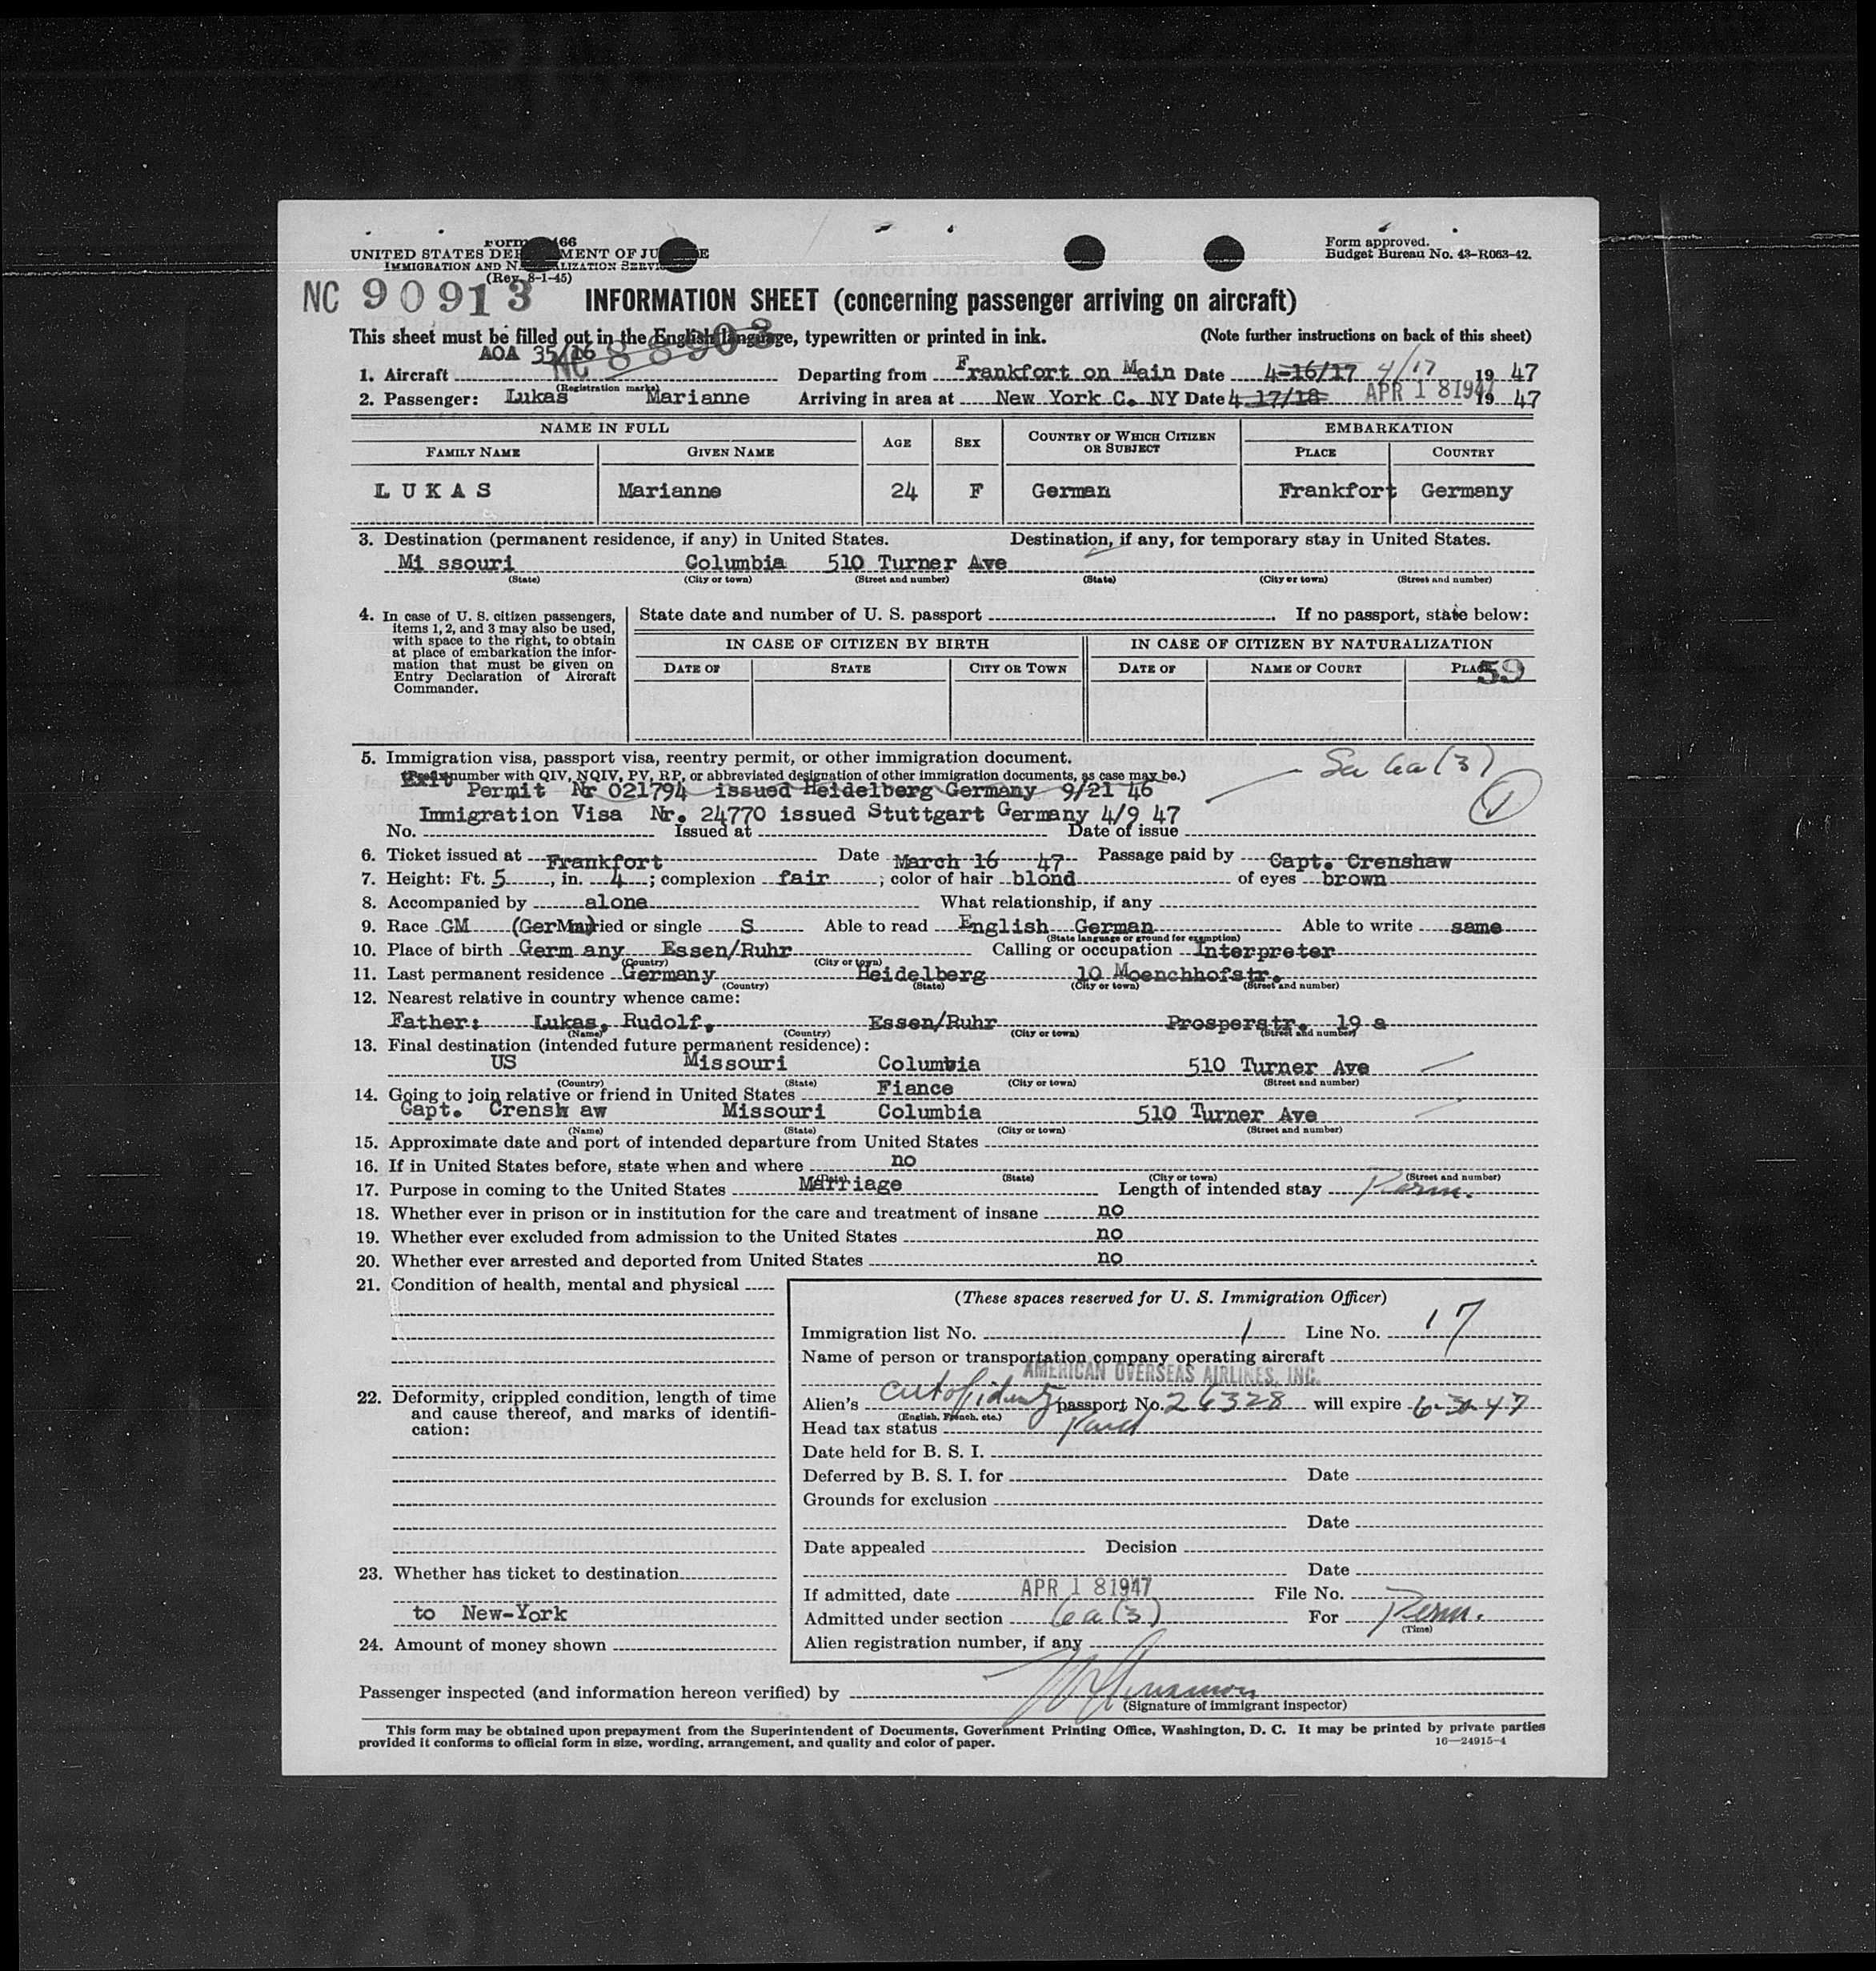 Form 466
UNITED STATES DEPARTMENT OF JUSTICE
IMMIGRATION AND NATURALIZATION SERVICE
(Rev. 8-1-45)
Form approved.
Budget Bureau No. 43-R063-42.
NC 90913 INFORMATION SHEET (concerning passenger arriving on aircraft)
This sheet must be filled out in the English language, typewritten or printed in ink. (Note further instructions on back of this sheet)
AOA 35/16 NC 88903
1. Aircraft Departing from Frankfort on Main Date 4-16/17 4/17 19 47
(Registration marks)
2. Passenger: Lukas Marianne Arriving in area at New York C. NY Date 4 17/18 APR 18 1947 19 47
NAME IN FULL AGE SEX COUNTRY OF WHICH CITIZEN OR SUBJECT EMBARKATION
FAMILY NAME GIVEN NAME PLACE COUNTRY
LUKAS Marianne 24 F German Frankfort Germany
3. Destination (permanent residence, if any) in United States. Destination, if any, for temporary stay in United States.
Mi ssouri Columbia 510 Turner Ave
(State) (City or town) (Street and number) (State) (City or town) (Street and number)
4. In case of U. S. citizen passengers, items 1, 2, and 3 may also be used, with space to the right, to obtain at place of embarkation the information that must be given on Entry Declaration of Aircraft Commander.
State date and number of U. S. passport. If no passport, state below:
IN CASE OF CITIZEN BY BIRTH IN CASE OF CITIZEN BY NATURALIZATION
DATE OF STATE CITY OR TOWN DATE OF NAME OF COURT PLACE
59
5. Immigration visa, passport visa, reentry permit, or other immigration document.
(Prefix number with QIV, NQIV, PV, RP, or abbreviated designation of other immigration documents, as case may be.)
6a(3)
Exit Permit Nr 021794 issued Heidelberg Germany 9/21 46
Immigration Visa Nr. 24770 issued Stuttgart Germany 4/9 47
No. Issued at Date of issue
6. Ticket issued at Frankfort Date March 16 47 Passage paid by Capt. Crenshaw
7. Height: Ft. 5, in. 4; complexion fair; color of hair blond of eyes brown
8. Accompanied by alone What relationship, if any
9. Race GM (German) Married or single S Able to read English German Able to write same
(State language or ground for exemption)
10. Place of birth Germ any Essen/Ruhr Calling or occupation Interpreter
(Country) (City or town)
11. Last permanent residence Germany Heidelberg 10 Moenchhofstr.
(Country) (State) (City or town) (Street and number)
12. Nearest relative in country whence came:
Father: Lukas, Rudolf, Essen/Ruhr Prosperstr. 19 a
(Name) (Country) (City or town) (Street and number)
13. Final destination (intended future permanent residence):
US Missouri Columbia 510 Turner Ave
(Country) (State) (City or town) (Street and number)
14. Going to join relative or friend in United States Fiance
Capt. Crensh aw Missouri Columbia 510 Turner Ave
(Name) (State) (City or town) (Street and number)
15. Approximate date and port of intended departure from United States
16. If in United States before, state when and where no
(Date) (State) (City or town) (Street and number)
17. Purpose in coming to the United States Marriage Length of intended stay Perm.
18. Whether ever in prison or in institution for the care and treatment of insane no
19. Whether ever excluded from admission to the United States no
20. Whether ever arrested and deported from United States no
21. Condition of health, mental and physical
22. Deformity, crippled condition, length of time and cause thereof, and marks of identification:
23. Whether has ticket to destination
to New-York
24. Amount of money shown
(These spaces reserved for U. S. Immigration Officer)
Immigration list No. 1 Line No. 17
Name of person or transportation company operating aircraft
AMERICAN OVERSEAS AIRLINES, INC.
Alien's cert of identity passport No. 26328 will expire 6-30-47
(English, French, etc.)
Head tax status Paid
Date held for B. S. I.
Deferred by B. S. I. for Date
Grounds for exclusion
Date
Date appealed Decision
Date
If admitted, date APR 18 1947 File No.
Admitted under section 6a(3) For Perm.
(Time)
Alien registration number, if any
Passenger inspected (and information hereon verified) by
(Signature of immigrant inspector)
This form may be obtained upon prepayment from the Superintendent of Documents, Government Printing Office, Washington, D. C. It may be printed by private parties
provided it conforms to official form in size, wording, arrangement, and quality and color of paper. 16—24915-4